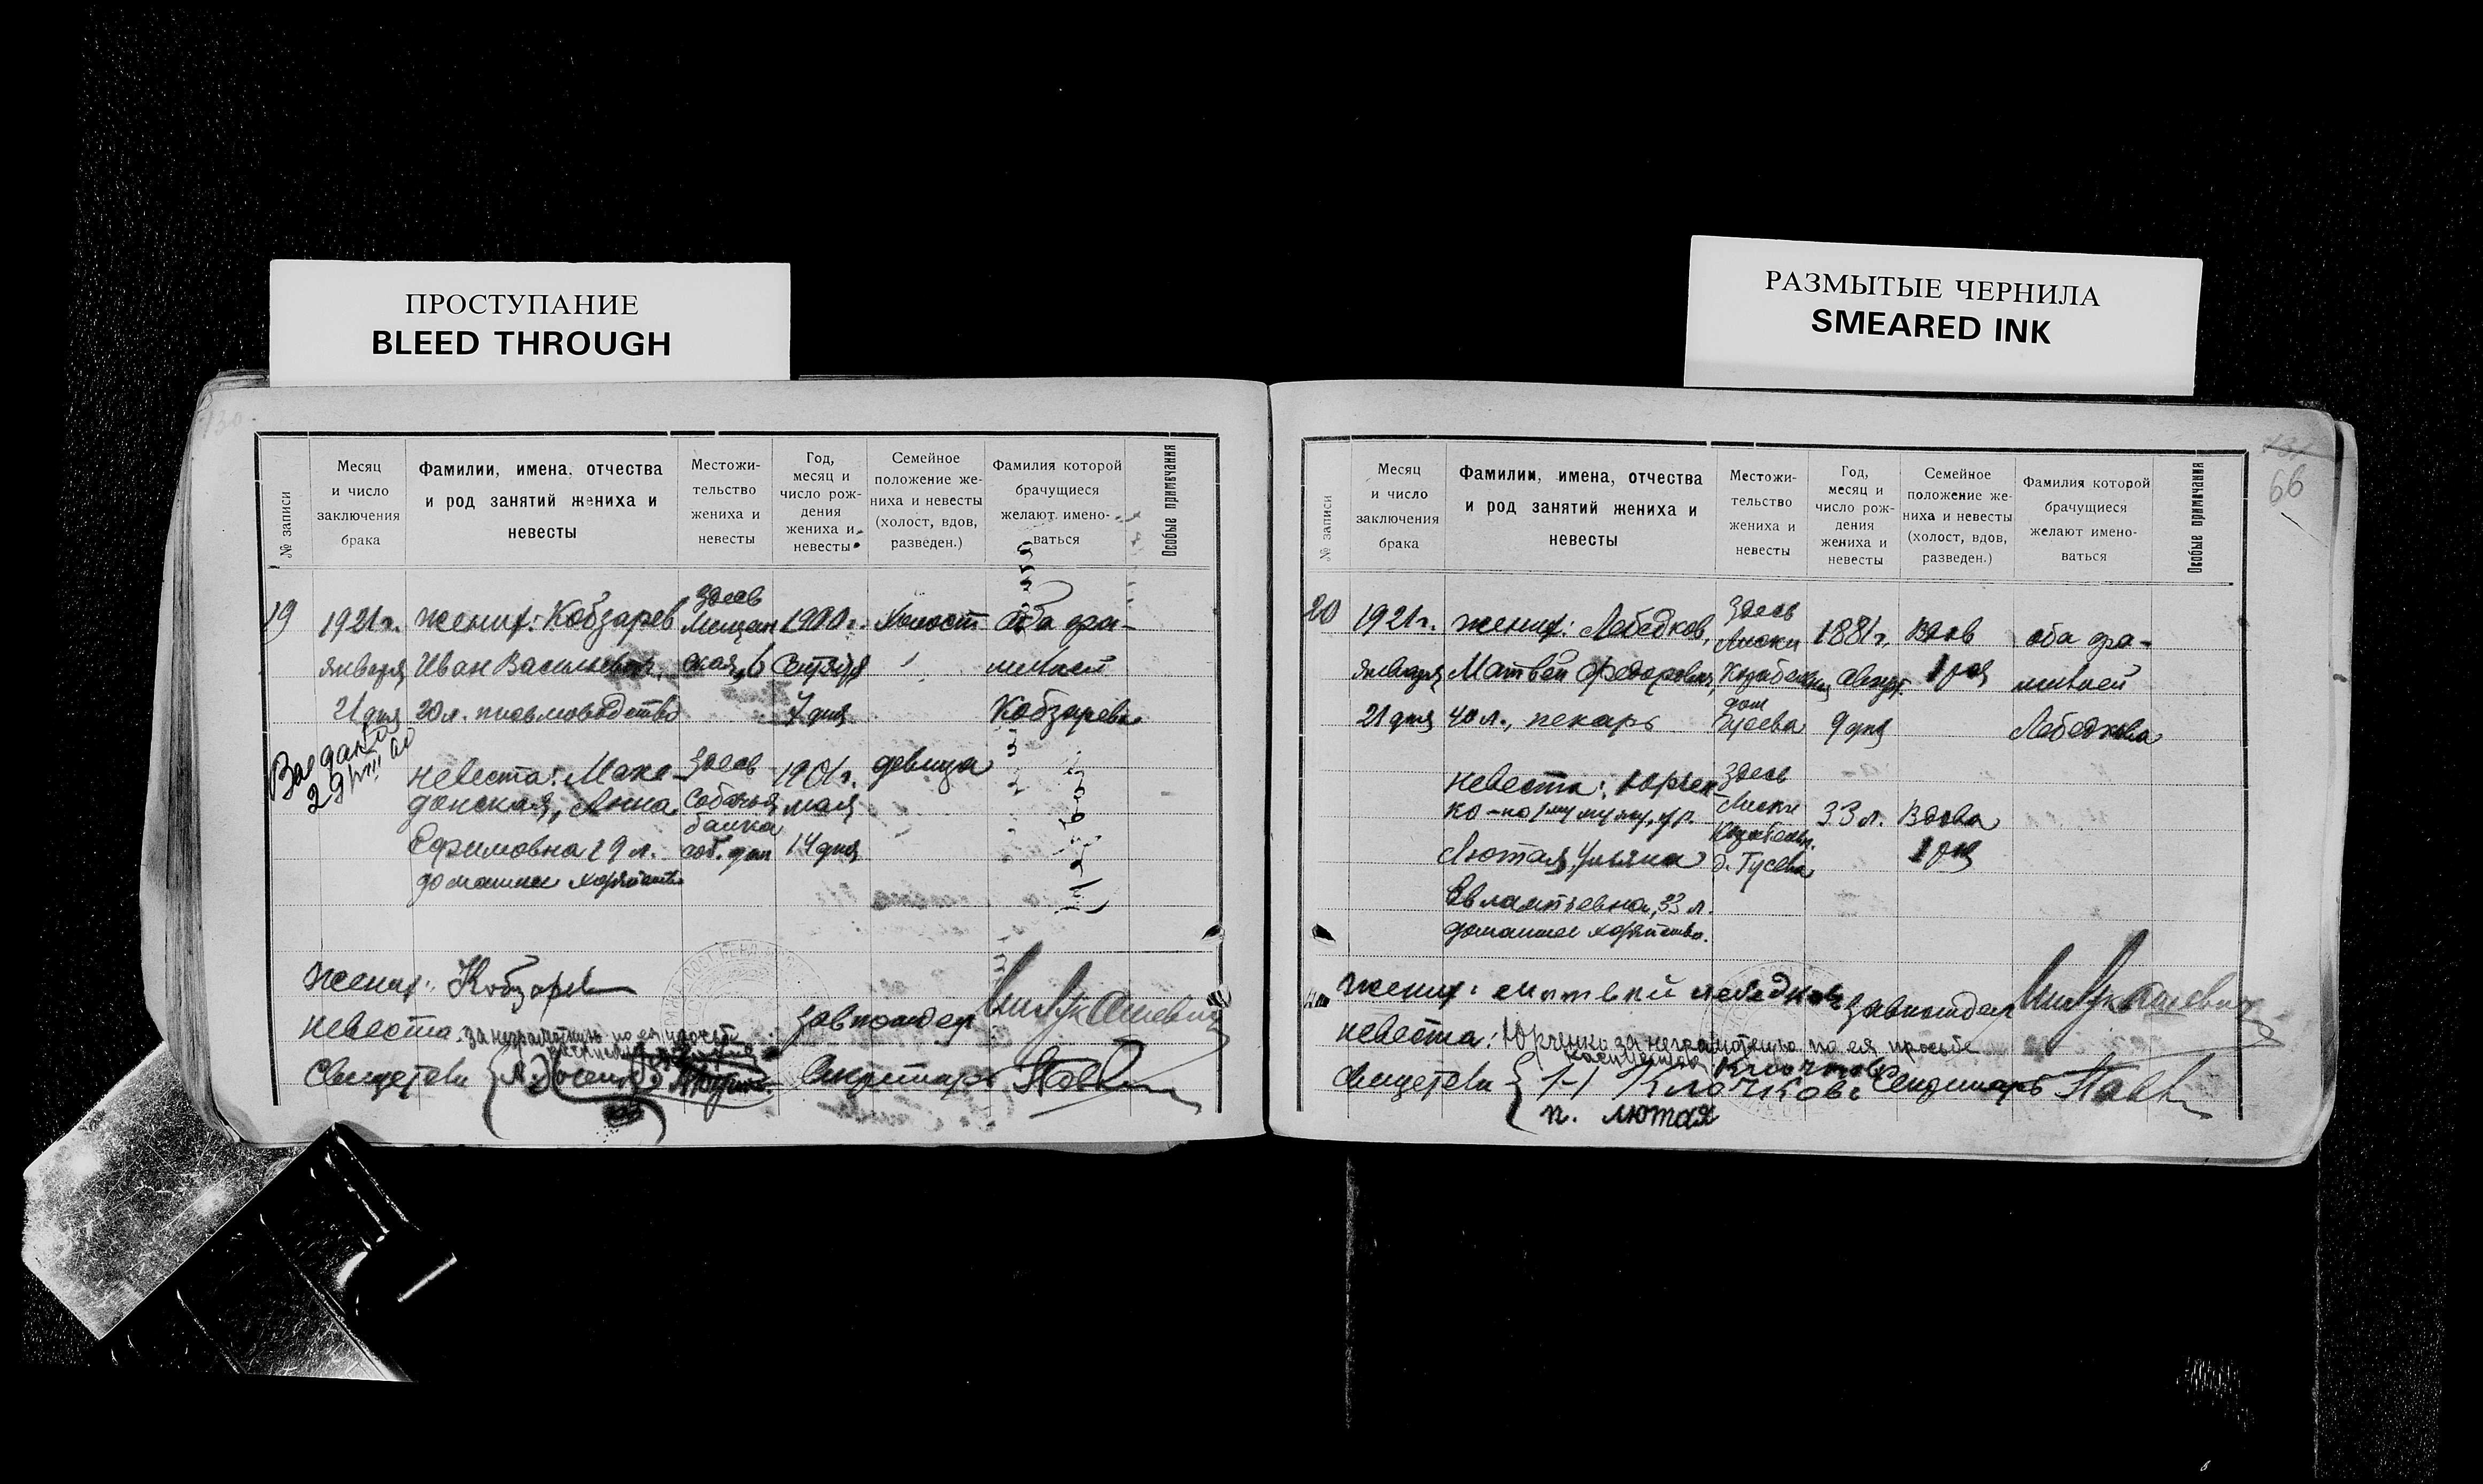 ПРОСТУПАНИЕ
BLEED THROUGH
РАЗМЫТЫЕ ЧЕРНИЛА
SMEARED INK
№ записи
Месяц и число заключения брака
Фамилии, имена, отчества и род занятий жениха и невесты
Местожительство жениха и невесты
Год, месяц и число рождения жениха и невесты
Семейное положение жениха и невесты (холост, вдов, разведен.)
Фамилия которой брачущиеся желают именоваться
Особые примечания
19
1921г.
января
21 дня
жених: Кобзарев
Иван Васильевич,
20 л. письмоводство
Здесь
Мещан
ская, 6
1900г.
Сентября
7 дня
Холост
оба фа-
милией
Кобзаревы
невеста: Маке-
донская, Анна
Ефимовна 19 л.
домашнее хозяйство
Здесь
Собачья
балка
соб. дом
1901г.
мая
14 дня
девица
жених: Кобзарев
невеста за неграмотную по ея просьбе
Свидетели
завподотдел
Секретарь
66
№ записи
Месяц и число заключения брака
Фамилии, имена, отчества и род занятий жениха и невесты
Местожительство жениха и невесты
Год, месяц и число рождения жениха и невесты
Семейное положение жениха и невесты (холост, вдов, разведен.)
Фамилия которой брачущиеся желают именоваться
Особые примечания
20
1921г.
января
21 дня
жених: Лебедков,
Матвей Федорович,
40 л., пекарь
Здесь
Лиски
дом
Гусева
1881г.
август.
9 дня
Вдов
оба фа-
милией
Лебедкова
невеста: Юрчен-
ко - по 1му мужу, ур.
Лютая, Ульяна
Евлампьевна, 33 л.
домашнее хозяйство.
Здесь
Лиски
д. Гусева
33 л.
Вдова
жених: матвей лебедков
невеста: Юрченко за неграмотную по ея просьбе
расписался Клочков
свидетели
Клочков
п. лютая
завподотдел
Секретарь